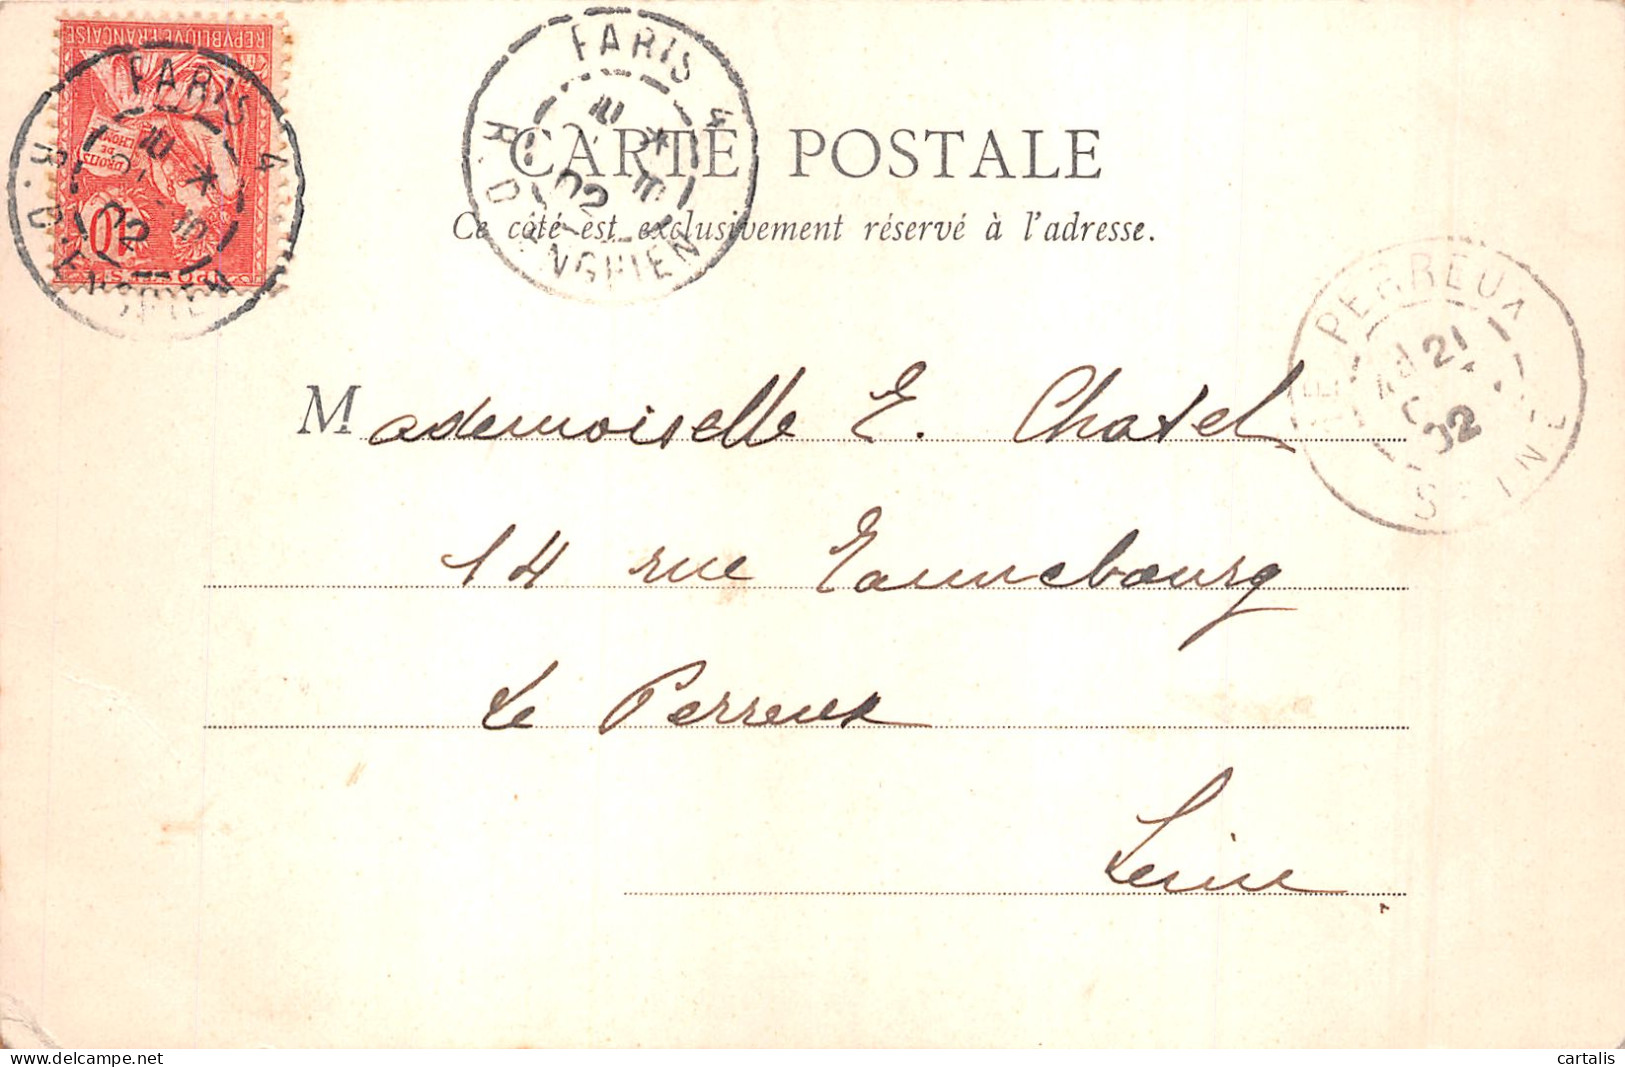 REPVBLIQVE FRANÇAISE
DROITS
DE
L'HOMME
10
POSTES
PARIS 4
R. D'ENGHIEN
02
PARIS 4
R. D'ENGHIEN
02
CARTE POSTALE
Ce côté est exclusivement réservé à l'adresse.
LE PERREUX
21
02
SEINE
Mademoiselle E. Chatel
14 rue Tannebourg
Le Perreux
Seine
cartalis